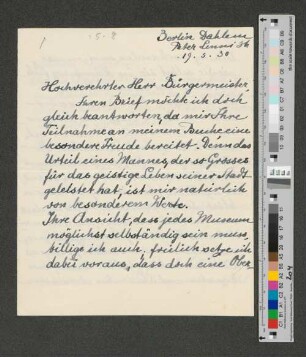 Berlin Dahlem
Peter Lenné 36
19.5.30
Hochverehrter Herr Bürgermeister,
Ihren Brief möchte ich doch
gleich beantworten, da mir Ihre
Teilnahme an meinem Buche eine
besondere Freude bereitet. Denn das
Urteil eines Mannes, der so Grosses
für das geistige Leben seiner Stadt
geleistet hat, ist mir natürlich
von besonderem Werte.
Ihre Ansicht, dass jedes Museum
möglichst selbständig sein muss,
billige ich auch, freilich setze ich
dabei voraus, dass doch eine Ober